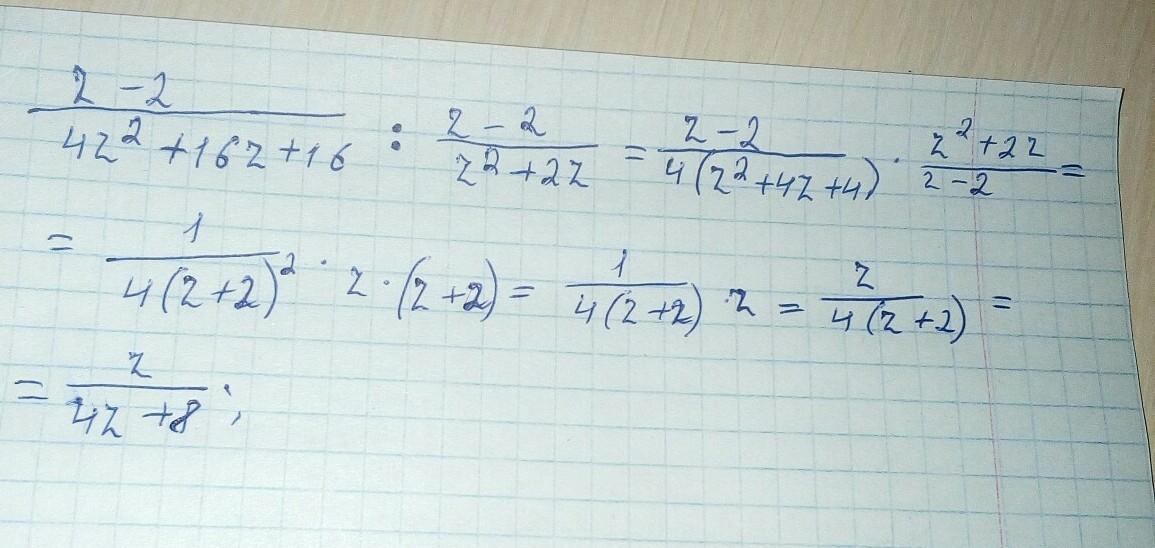 (z-2)/(4z²+16z+16) : (z-2)/(z²+2z) = (z-2)/(4(z²+4z+4)) · (z²+2z)/(z-2) =
= 1/(4(z+2)²) · z·(z+2) = 1/(4(z+2)) · z = z/(4(z+2)) =
= z/(4z+8);